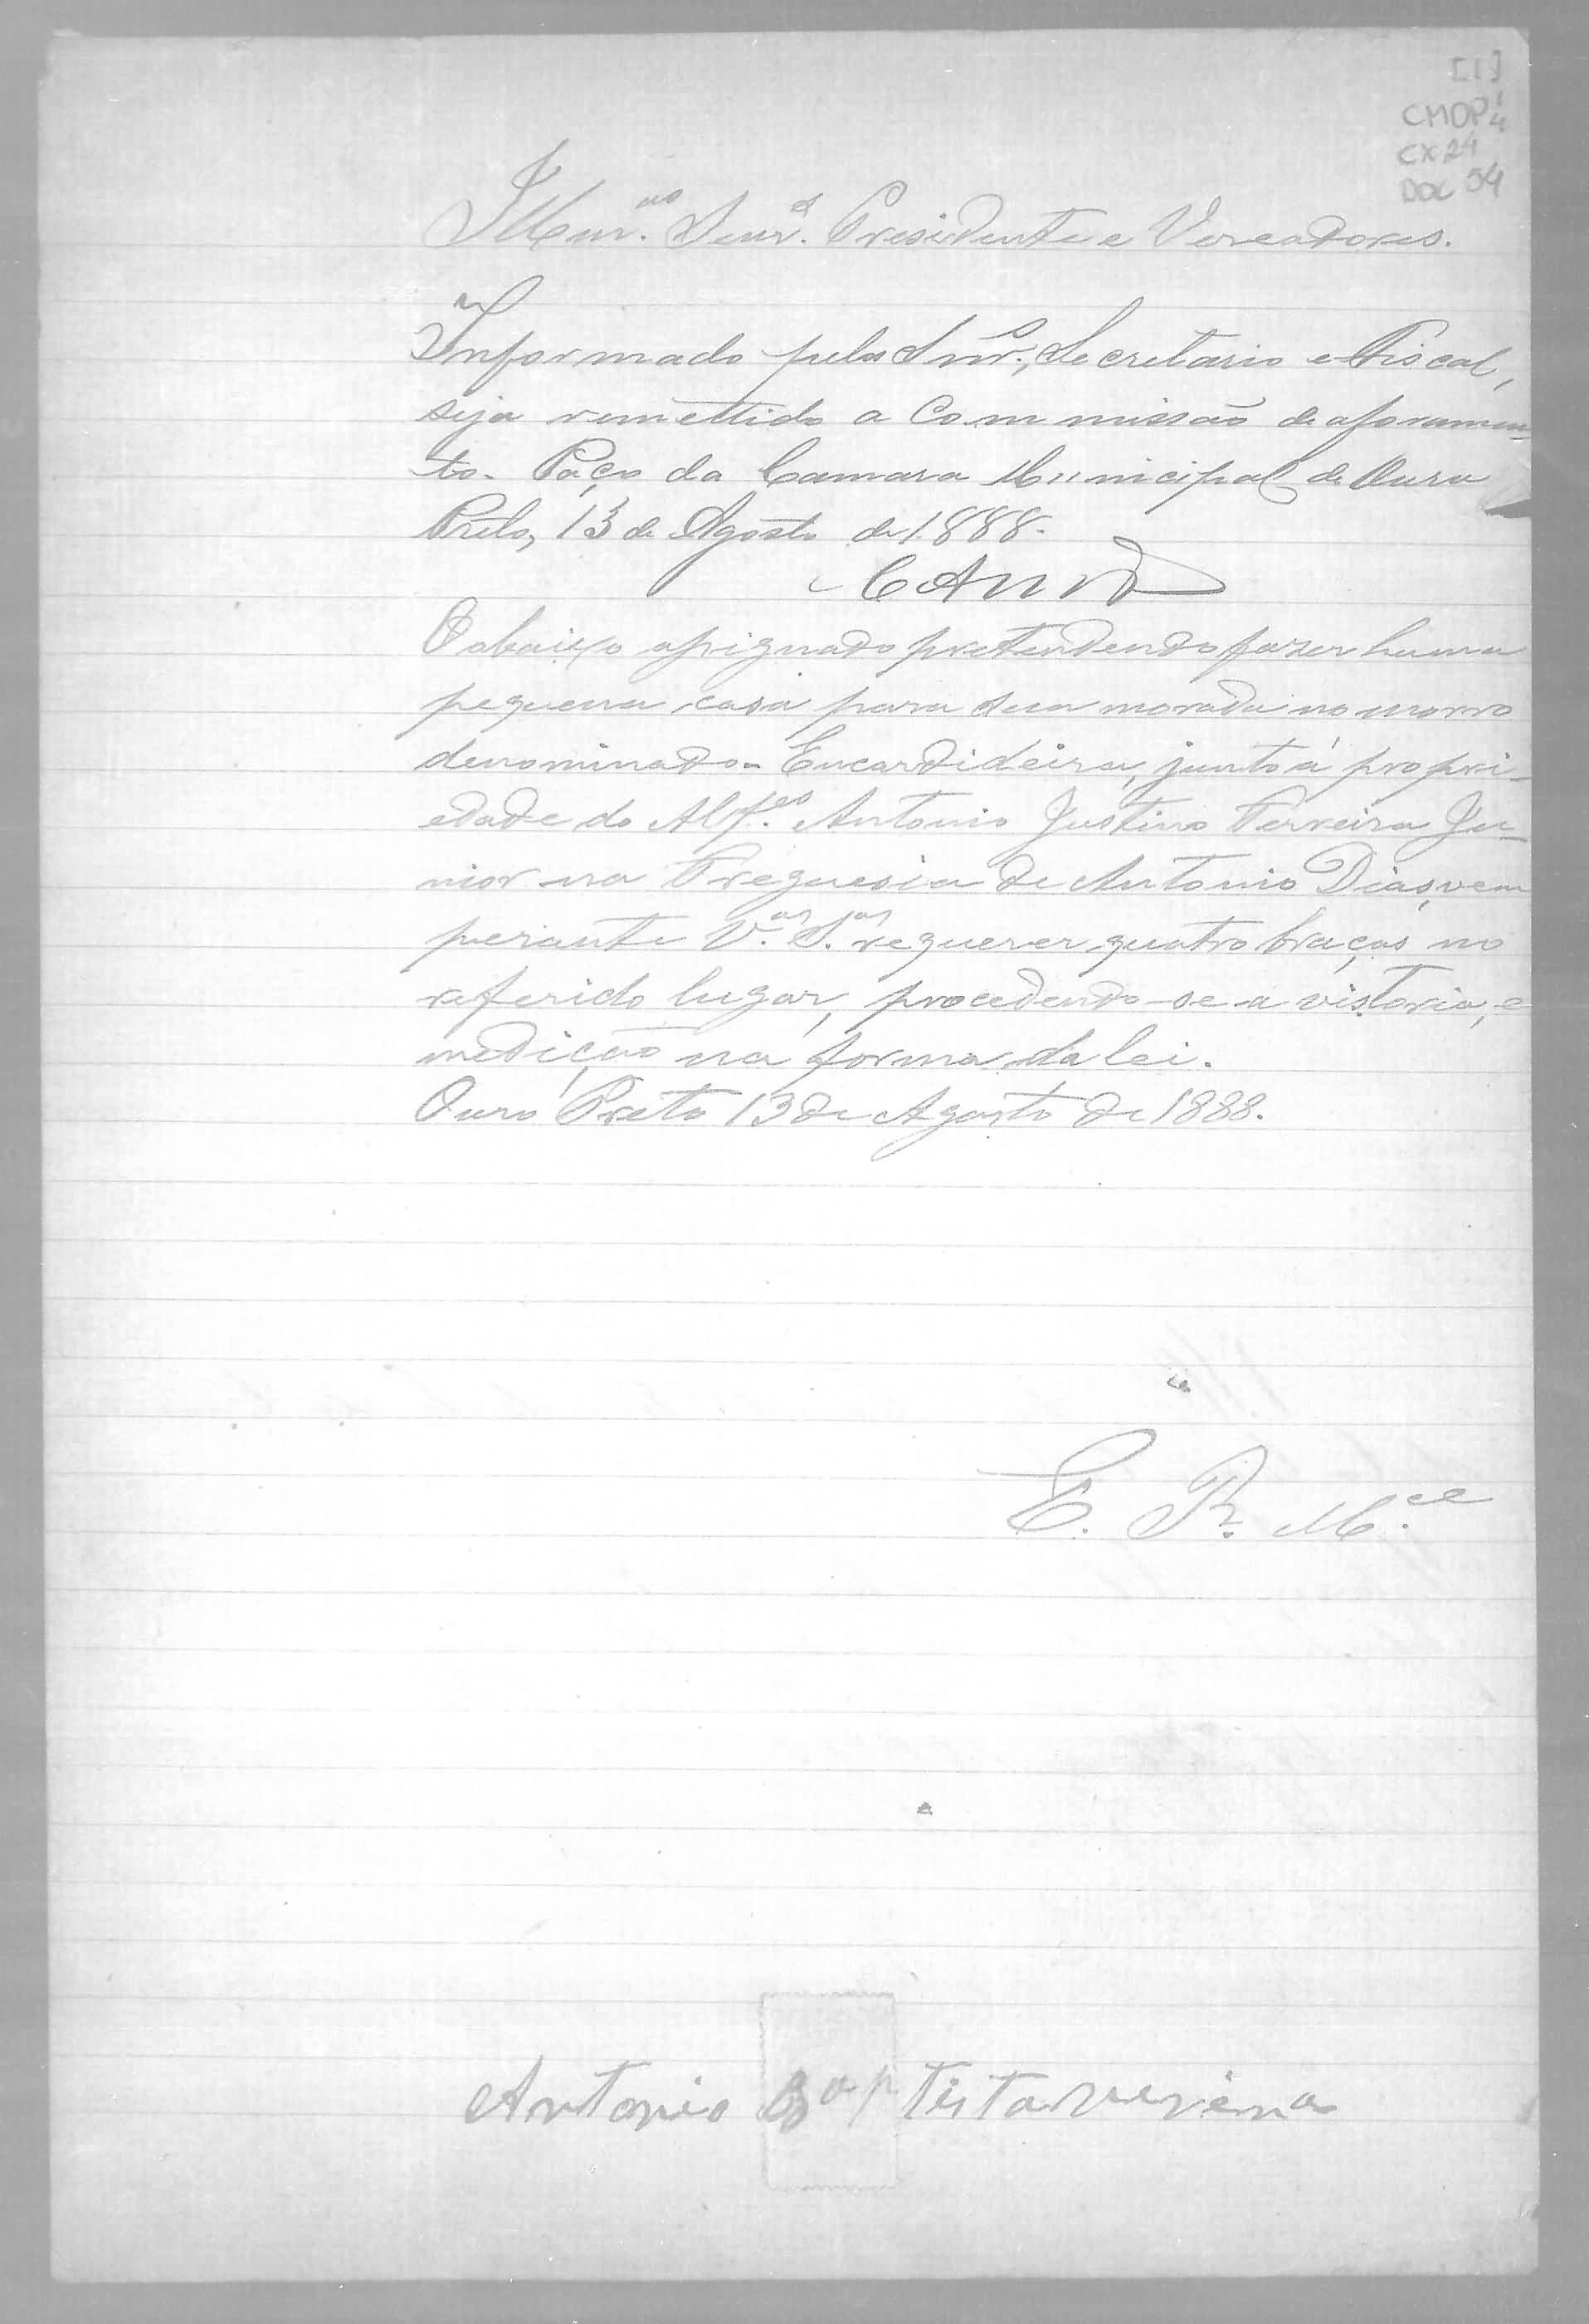 [1]
CMOP 1/4
CX 24
DOC 54
Illm.os Senr.s Presidente e Vereadores.
Informado pelos Snr.s Secretario e Fiscal,
seja remettido a Commissão de aforamen-
to. Paço da Camara Municipal de Ouro
Preto, 13 de Agosto de 1888.
O abaixo assignado pretendendo fazer huma
pequena casa para sua morada no morro
denominado - Encardideira, junto á propri-
edade do Alf.es Antonio Justino Ferreira Ju-
nior na Freguesia de Antonio Dias, vem
perante V.as S.as requerer quatro braças no
referido lugar, procedendo-se a vistoria, e
medição na forma da lei.
Ouro Preto 13 de Agosto de 1888.
E. R. M.ce
Antonio Baptista